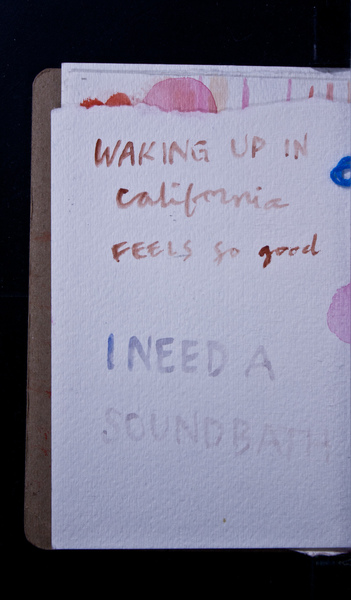 WAKING UP IN
California
FEELS so good
I NEED A
SOUNDBATH